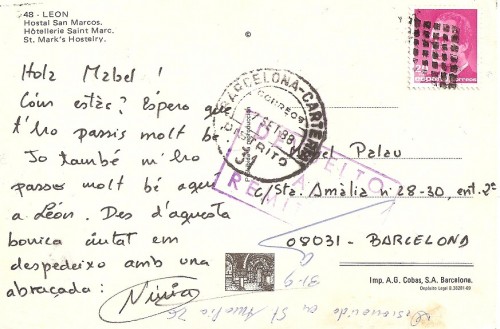 48 - LEON
Hostal San Marcos.
Hôtellerie Saint Marc.
St. Mark's Hostelry.
©
España correos
BARCELONA-CARTERIA
CORREOS
7 SET 88
DISTRITO
31
DEVUELTO
A
REMI
Hola Mabel !
Com estàs? Espero que
t'ho passis molt bé
Jo també m'ho
passo molt bé aquí
a León. Des d'aquesta
bonica ciutat em
despedeixo amb una
abraçada :
Núria
Palau
c/ Sta. Amàlia nº 28-30, ent. 2ª
08031 - BARCELONA
Imp. A.G. Cobas, S.A. Barcelona.